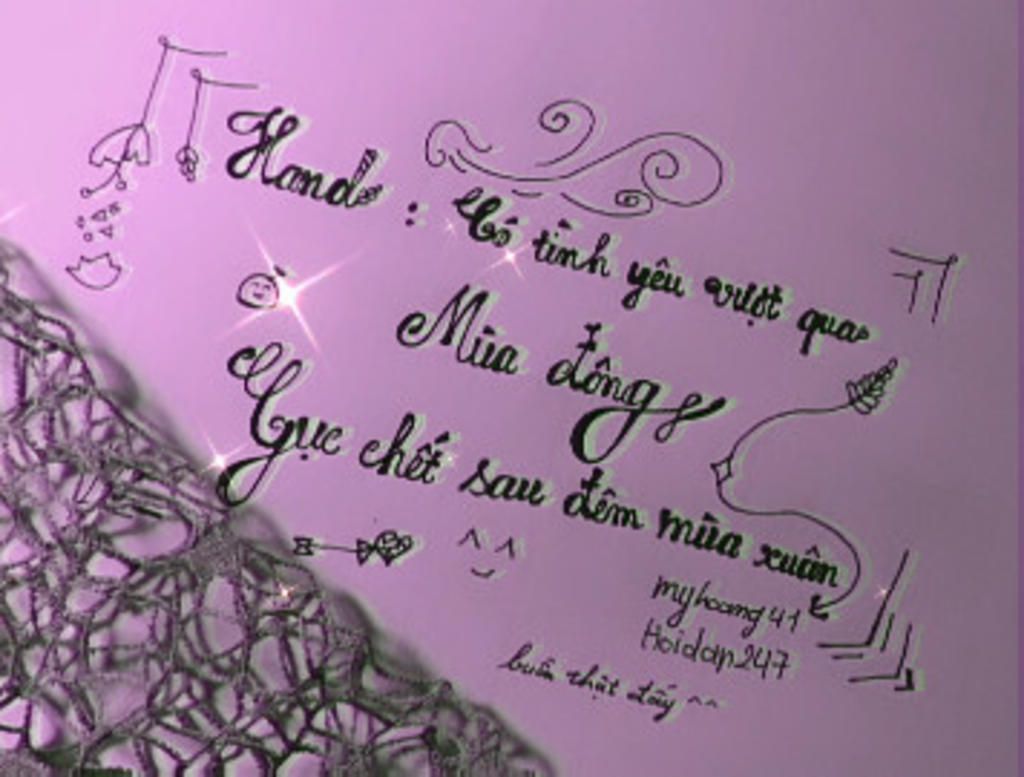 Hand : Có tình yêu vượt qua
Mùa đông
Gục chết sau đêm mùa xuân
myhoang41
Hoidap247
buồn thật đấy ^^